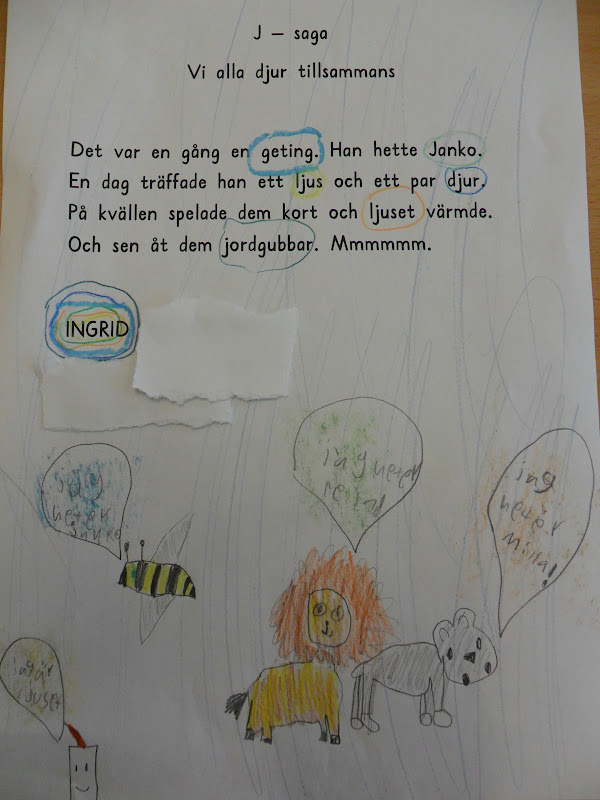 J – saga
Vi alla djur tillsammans
Det var en gång en geting. Han hette Janko.
En dag träffade han ett ljus och ett par djur.
På kvällen spelade dem kort och ljuset värmde.
Och sen åt dem jordgubbar. Mmmmmm.
INGRID
jag
heter
jag heter
jag
heter
Milla!
jag är
ljuset